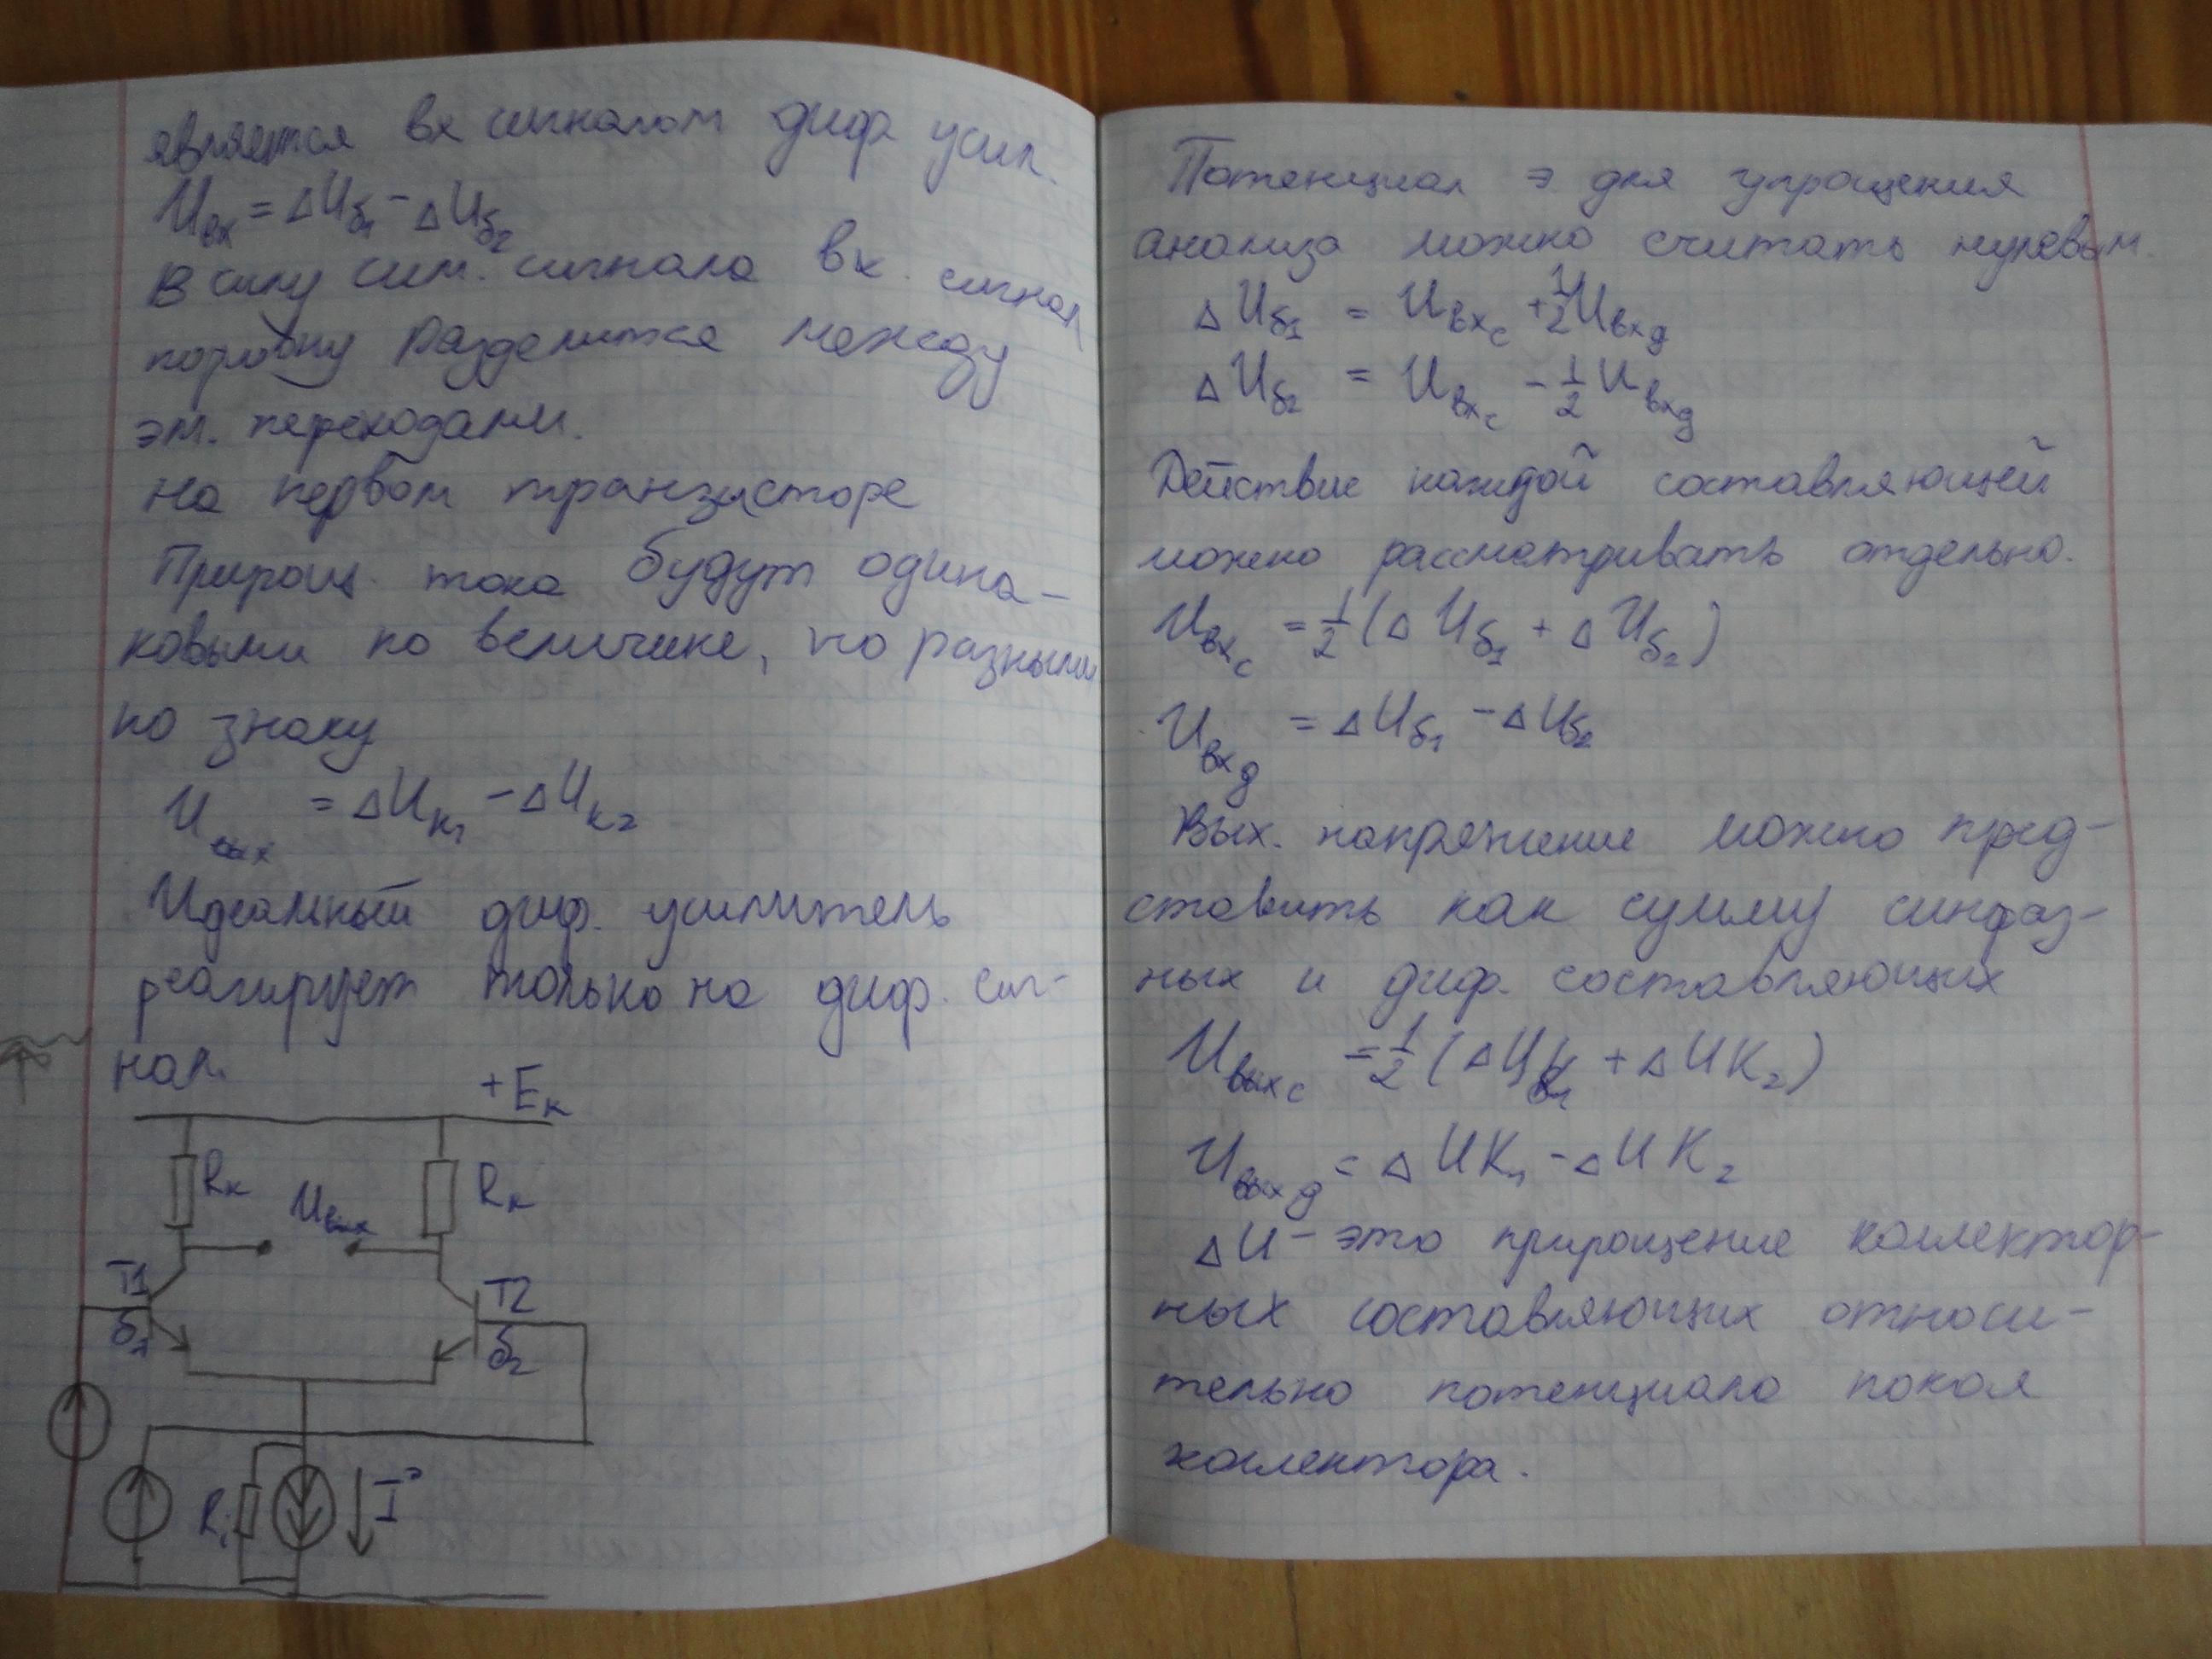 является вх сигналом диф усил.
Uвх = ΔUб1 - ΔUб2
В силу сим. сигнала вх. сигнал
поровну разделится между
эм. переходами.
на первом транзисторе
Прирощ. тока будут одина-
ковыми по величине, но разными
по знаку
Uвых = ΔUк1 - ΔUк2
Идеальный диф. усилитель
реагирует только на диф. сиг-
нал.
+Eк
Rк Uвых Rк
T1 T2
б1 б2
Ri I
Потенциал э для упрощения
анализа можно считать нулевым.
ΔUб1 = Uвхс + 1/2 Uвхд
ΔUб2 = Uвхс - 1/2 Uвхд
Действие каждой составляющей
можно рассматривать отдельно.
Uвхс = 1/2 (ΔUб1 + ΔUб2)
Uвхд = ΔUб1 - ΔUб2
Вых. напряжение можно пред-
ставить как сумму синфаз-
ных и диф. составляющих
Uвыхс = 1/2 (ΔUк1 + ΔUK2)
Uвыхд = ΔUK1 - ΔUK2
ΔU - это прирощение коллектор-
ных составляющих относи-
тельно потенциала покоя
коллектора.